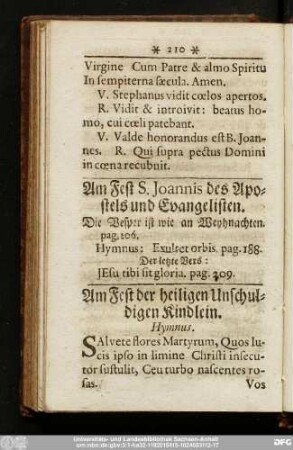 * 210 *
Virgine Cum Patre & almo Spiritu
In sempiterna sæcula. Amen.
V. Stephanus vidit cœlos apertos.
R. Vidit & introivit: beatus ho-
mo, cui cœli patebant.
V. Valde honorandus est B. Joan-
nes. R. Qui supra pectus Domini
in cœna recubuit.
Am Fest S. Joannis des Apo-
stels und Evangelisten.
Die Vesper ist wie an Weyhnachten.
pag. 106.
Hymnus: Exultet orbis. pag. 188.
Der letzte Vers:
JEsu tibi sit gloria. pag. 209.
Am Fest der heiligen Unschul-
digen Kindlein.
Hymnus.
SAlvete flores Martyrum, Quos lu-
cis ipso in limine Christi insecu-
tor sustulit, Ceu turbo nascentes ro-
sas. Vos
Universitäts- und Landesbibliothek Sachsen-Anhalt
DFG